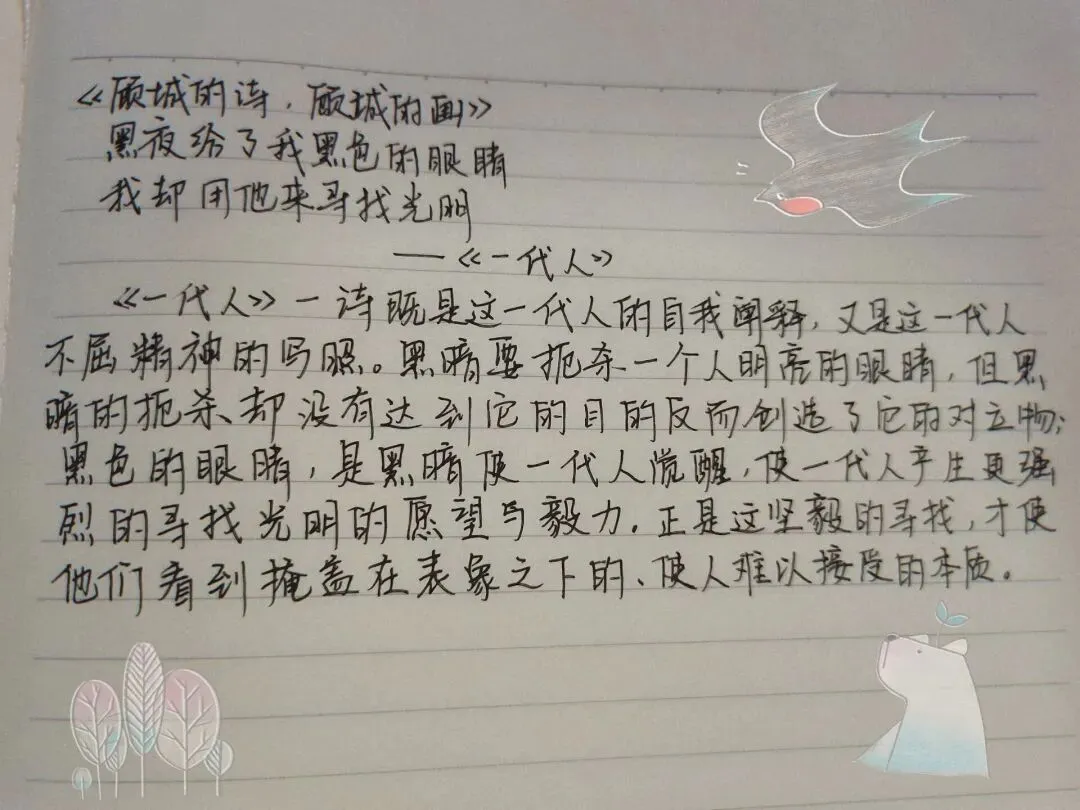 《顾城的诗．顾城的画》
黑夜给了我黑色的眼睛
我却用他来寻找光明
——《一代人》
《一代人》一诗既是这一代人的自我阐释，又是这一代人
不屈精神的写照。黑暗要扼杀一个人明亮的眼睛，但黑
暗的扼杀、却没有达到它的目的反而创造了它的对立物；
黑色的眼睛，是黑暗使一代人觉醒，使一代人产生更强
烈的寻找光明的愿望与毅力．正是这坚毅的寻找，才使
他们看到掩盖在表象之下的、使人难以接受的本质。